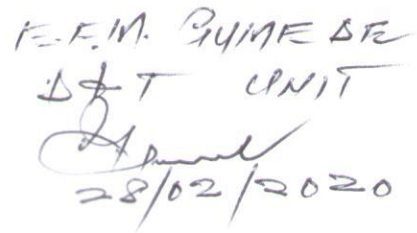 F.F.M. GUMEDE
D&T UNIT
28/02/2020